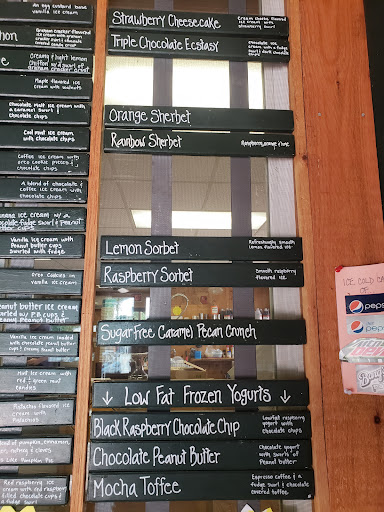 An egg custard base
vanilla ice cream
Graham cracker flavored
Creamy & light lemon
chiffon w/ a swirl of
graham cracker crust
Maple flavored ice
cream with walnuts
Chocolate malt ice cream with
a caramel swirl &
chocolate chips
Cool mint ice cream with
chocolate chips
Coffee ice cream with
oreo cookie pieces &
chocolate chips
A blend of chocolate &
coffee ice cream with
chocolate chips
banana ice cream w/ a
chocolate fudge swirl & Peanut
butter cups
Vanilla ice cream with
Peanut butter cups
swirled with fudge
Oreo cookies in
vanilla ice cream
Peanut butter ice cream
swirled w/ P.B cups &
creamy Peanut butter
Vanilla ice cream loaded
with chocolate peanut butter
cups & creamy Peanut butter
Mint ice cream with
red & green mint
candies
Pistachio flavored ice
cream with
Pistachios
of pumpkin, cinnamon,
nutmeg & cloves
Like Pumpkin Pie
Red raspberry ice
cream with raspberry
filled chocolate cups &
chocolate chips
Strawberry Cheesecake
Cream cheese flavored
ice cream with
strawberry swirl
Triple Chocolate Ecstasy
Chocolate ice
cream with a fudge
swirl & dark chocolate
chips
Orange Sherbet
Rainbow Sherbet
Raspberry, orange & lime
Lemon Sorbet
Refreshingly smooth
lemon flavored ice
Raspberry Sorbet
Smooth raspberry
flavored ice.
Sugar free Caramel Pecan Crunch
↓ Low Fat Frozen Yogurts ↓
Black Raspberry Chocolate Chip
Lowfat raspberry
yogurt with
chocolate chips
Chocolate Peanut Butter
Chocolate yogurt
with swirls of
Peanut butter
Mocha Toffee
Espresso coffee &
fudge swirl & chocolate
covered toffee
ICE COLD CA
OF
pepsi
peps